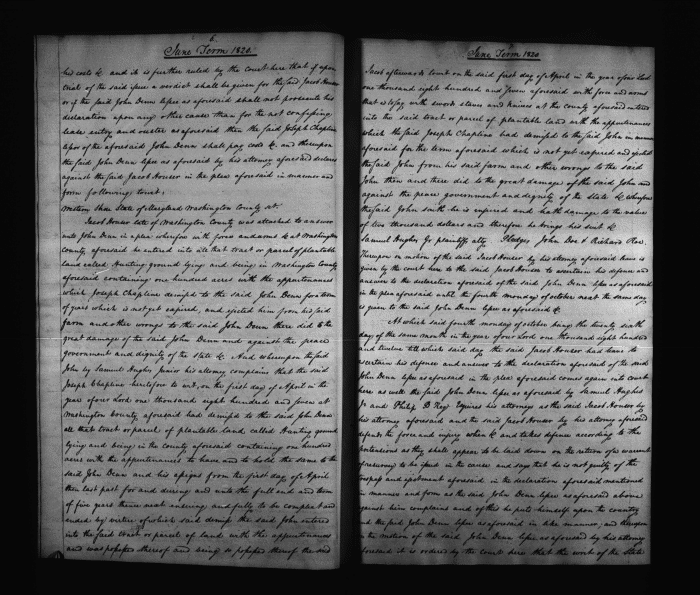 6.
June Term 1820.
his costs &c and it is further ruled by the court here that if upon
trial of the said issue a verdict shall be given for the said Jacob Houser
or if the said John Denn lessee as aforesaid shall not prosecute his
declaration upon any other cause than for the not confessing
lease entry and ouster as aforesaid then the said Joseph Chapline
lessor of the aforesaid John Denn shall pay costs &c. and thereupon
the said John Denn lessee as aforesaid by his attorney aforesaid declares
against the said Jacob Houser in the plea aforesaid in manner and
form following towit;
Western Shore State of Maryland Washington County sct.
Jacob Houser late of Washington County was attached to answer
unto John Denn in a plea wherefore with force and arms &c at Washington
County aforesaid he entered into all that tract or parcel of plantable
land called Hunting ground lying and being in Washington County
aforesaid containing one hundred acres with the appurtenances
which Joseph Chapline demised to the said John Denn for a term
of years which is not yet expired, and ejected him from his said
farm and other wrongs to the said John Denn there did to the
great damage of the said John Denn and against the peace
government and dignity of the State &c. And whereupon the said
John by Samuel Hughes Junior his attorney complains that the said
Joseph Chapline heretofore to wit, on the first day of April in the
year of our Lord one thousand eight hundred and seven at
Washington County aforesaid had demised to the said John Denn
all that tract or parcel of plantable land called Hunting ground
lying and being in the county aforesaid containing one hundred
acres with the appurtenances to have and to hold the same to the
said John Denn and his assigns from the first day of April
then last past for and during and unto the full end and term
of five years thence next ensuing and fully to be complete and
ended by virtue of which said demise the said John entered
into the said tract or parcel of land with the appurtenances
and was possessed thereof and being so possessed thereof the said
June Term 1820
Jacob afterwards towit on the said first day of April in the year of our Lord
one thousand eight hundred and seven aforesaid with force and arms
that is to say with swords staves and knives at the county aforesaid entered
into the said tract or parcel of plantable land with the appurtenances
which the said Joseph Chapline had demised to the said John in manner
aforesaid for the term aforesaid which is not yet expired and ejected
the said John from his said farm and other wrongs to the said
John then and there did to the great damage of the said John and
against the peace government and dignity of the State &c Whereupon
the said John saith he is injured and hath damage to the value
of five thousand dollars and therefore he brings his suit &c
Samuel Hughes Jr plaintiffs atty. Pledges, John Doe & Richard Roe.
Whereupon on motion of the said Jacob Houser by his attorney aforesaid leave is
given by the court here to the said Jacob Houser to ascertain his defence and
answer to the declaration aforesaid of the said John Denn lessee as aforesaid
in the plea aforesaid until the fourth monday of october next the same day
is given to the said John Denn lessee as aforesaid &c
At which said fourth monday of october being the twenty sixth
day of the same month in the year of our Lord one thousand eight hundred
and twelve till which said day the said Jacob Houser had leave to
ascertain his defence and answer to the declaration aforesaid of the said
John Denn lessee as aforesaid in the plea aforesaid comes again into court
here as well the said John Denn lessee as aforesaid by Samuel Hughes
Jr and Philip B Key Esquires his attorney as the said Jacob Houser by
his attorney aforesaid and the said Jacob Houser by his attorney aforesaid
defends the force and injury when &c and takes defence according to the
pretensions as they shall appear to be laid down on the return of a warrant
of resurvey to be issued in the cause and says that he is not guilty of the
trespass and ejectment aforesaid in the declaration aforesaid mentioned
in manner and form as the said John Denn lessee as aforesaid above
against him complains and of this he puts himself upon the country
and the said John Denn lessee as aforesaid in like manner, and thereupon
on the motion of the said John Denn lessee as aforesaid by his attorney
aforesaid it is ordered by the court here that the writ of the State